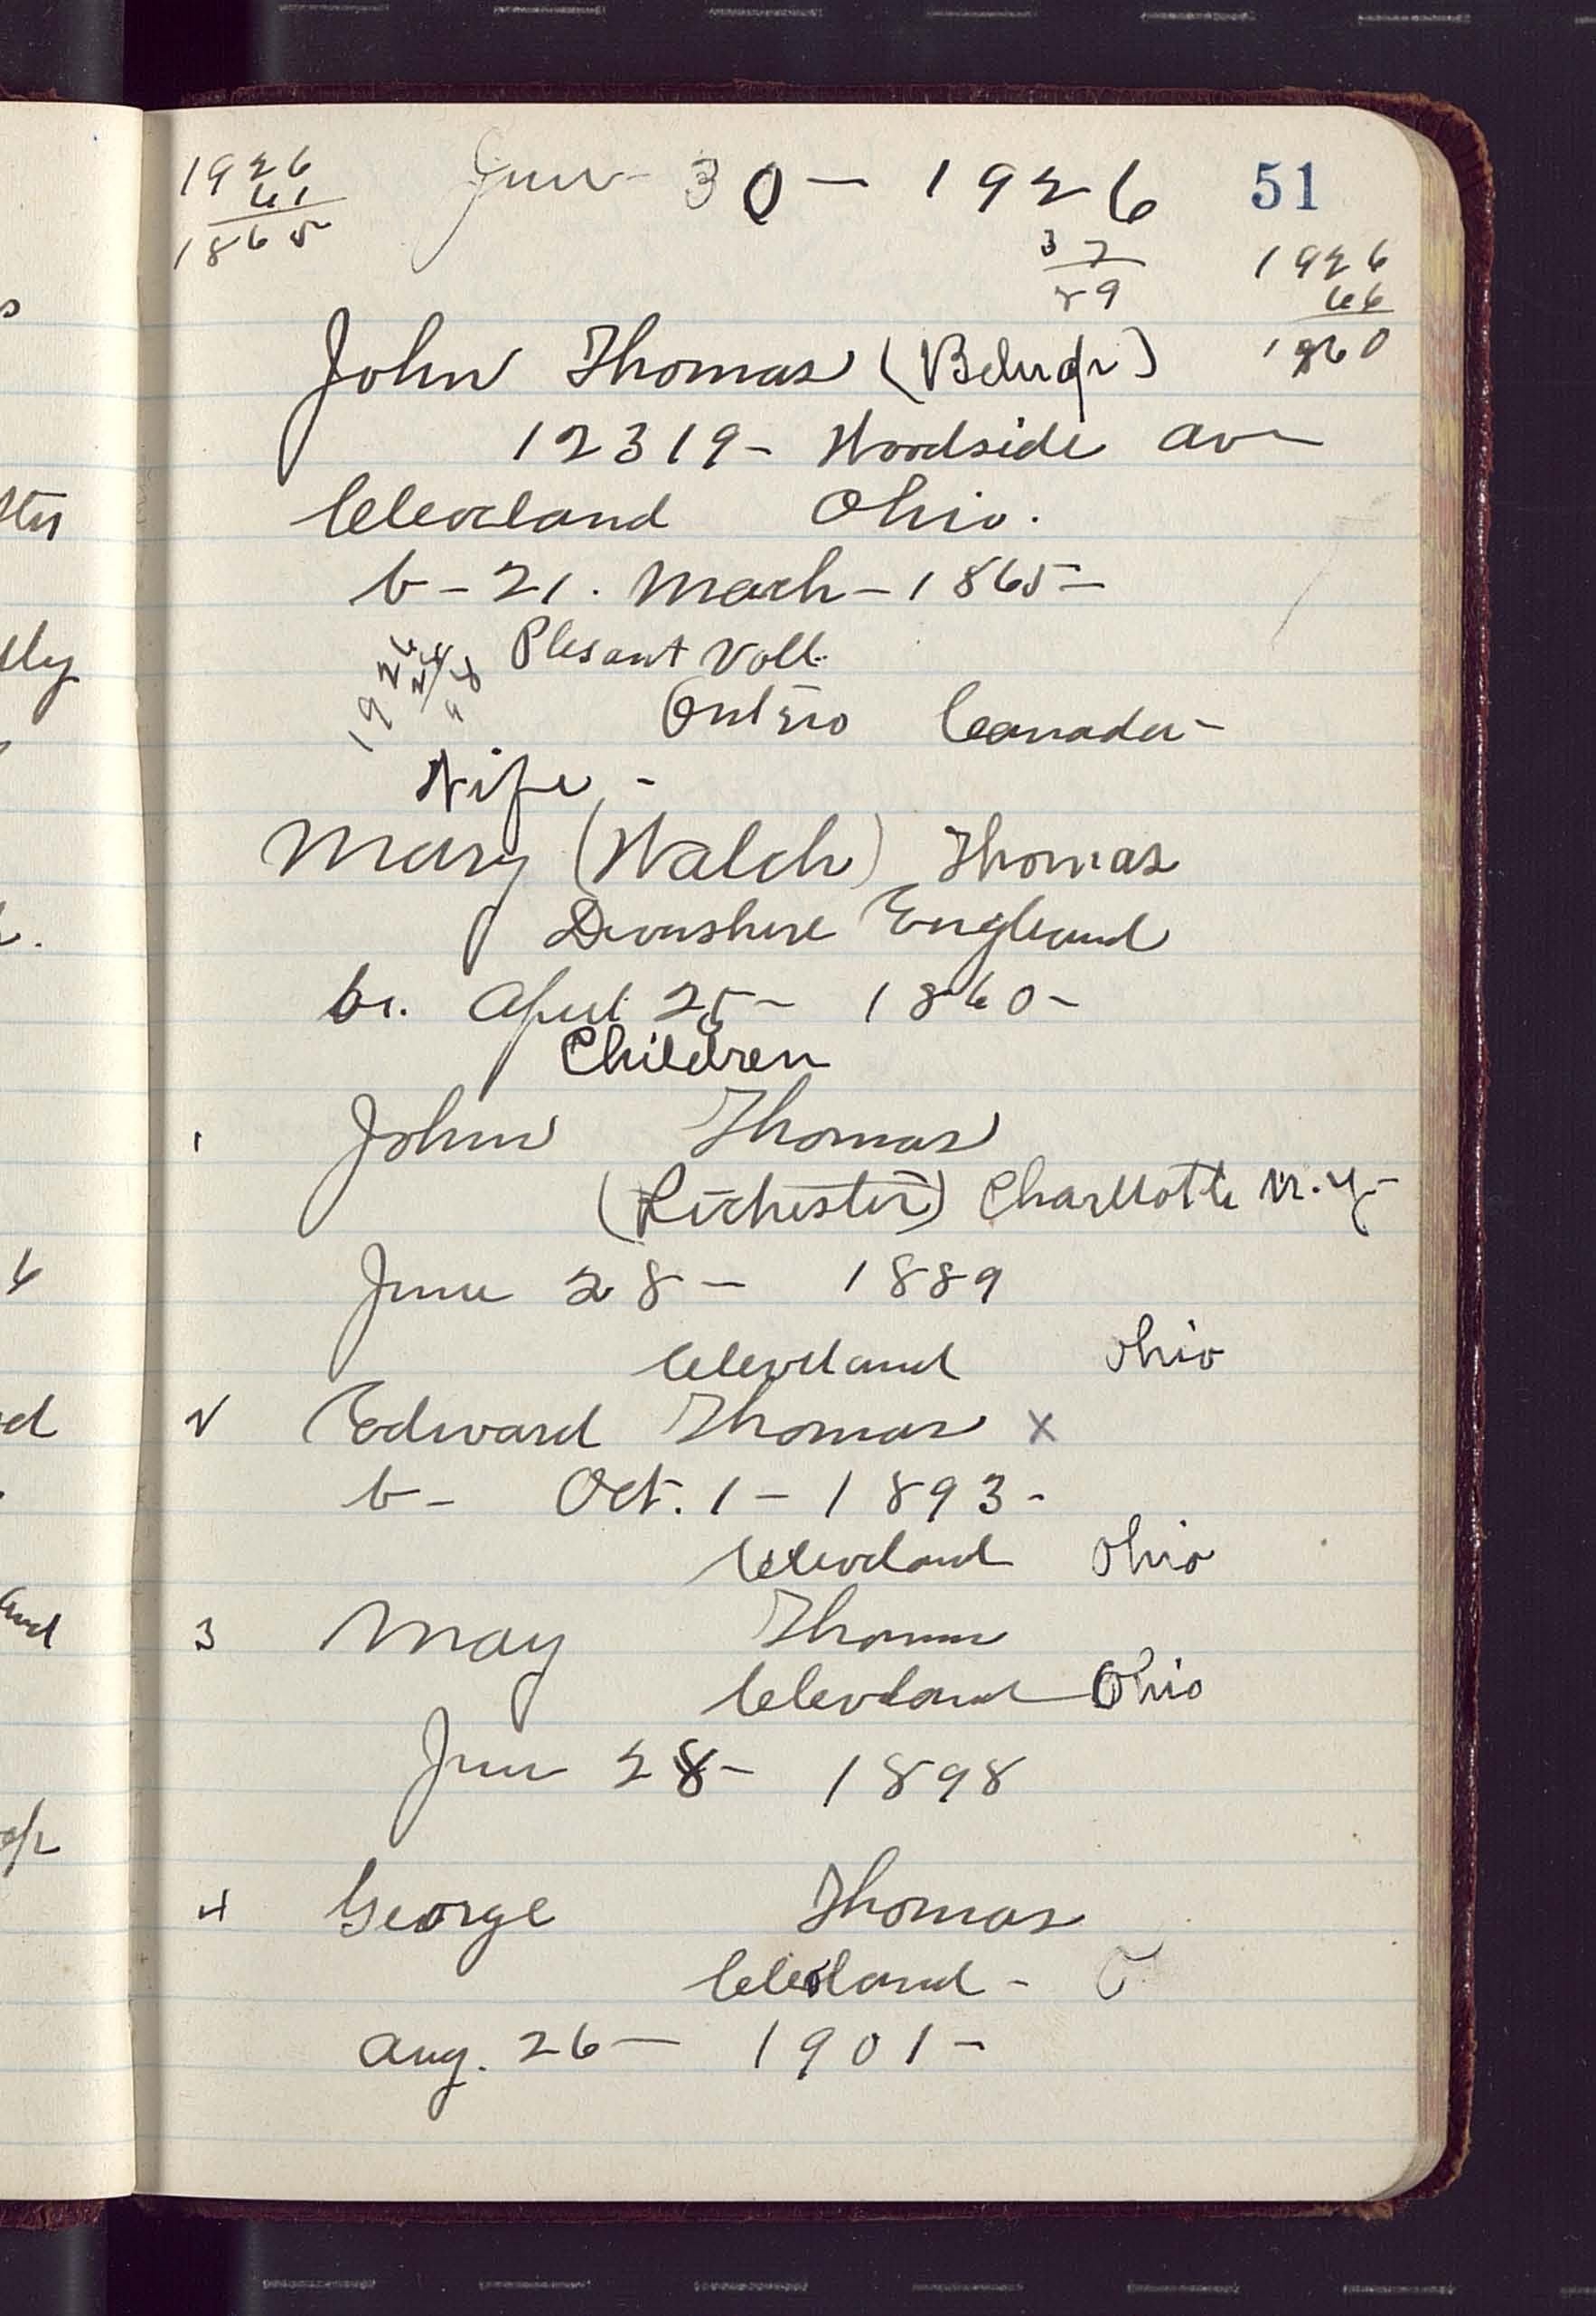 1926
61
1865
June 30 - 1926
51
37
89
1926
66
1860
John Thomas
12319 - Woodside av
Cleveland Ohio.
b - 21. March - 1865 -
Plesant Vall.
1926
28
98
Ontrio Canada -
Wife -
Mary (Walch) Thomas
Devonshire England
br. April 25 - 1860 -
Children
1 John Thomas
(Rochester) Charllotte N.Y-
June 28 - 1889
Cleveland Ohio
2 Edward Thomas x
b - Oct. 1 - 1893 -
Cleveland Ohio
3 May Thomas
Cleveland Ohio
June 28 - 1898
4 George Thomas
Cleveland - O
Aug. 26 - 1901 -